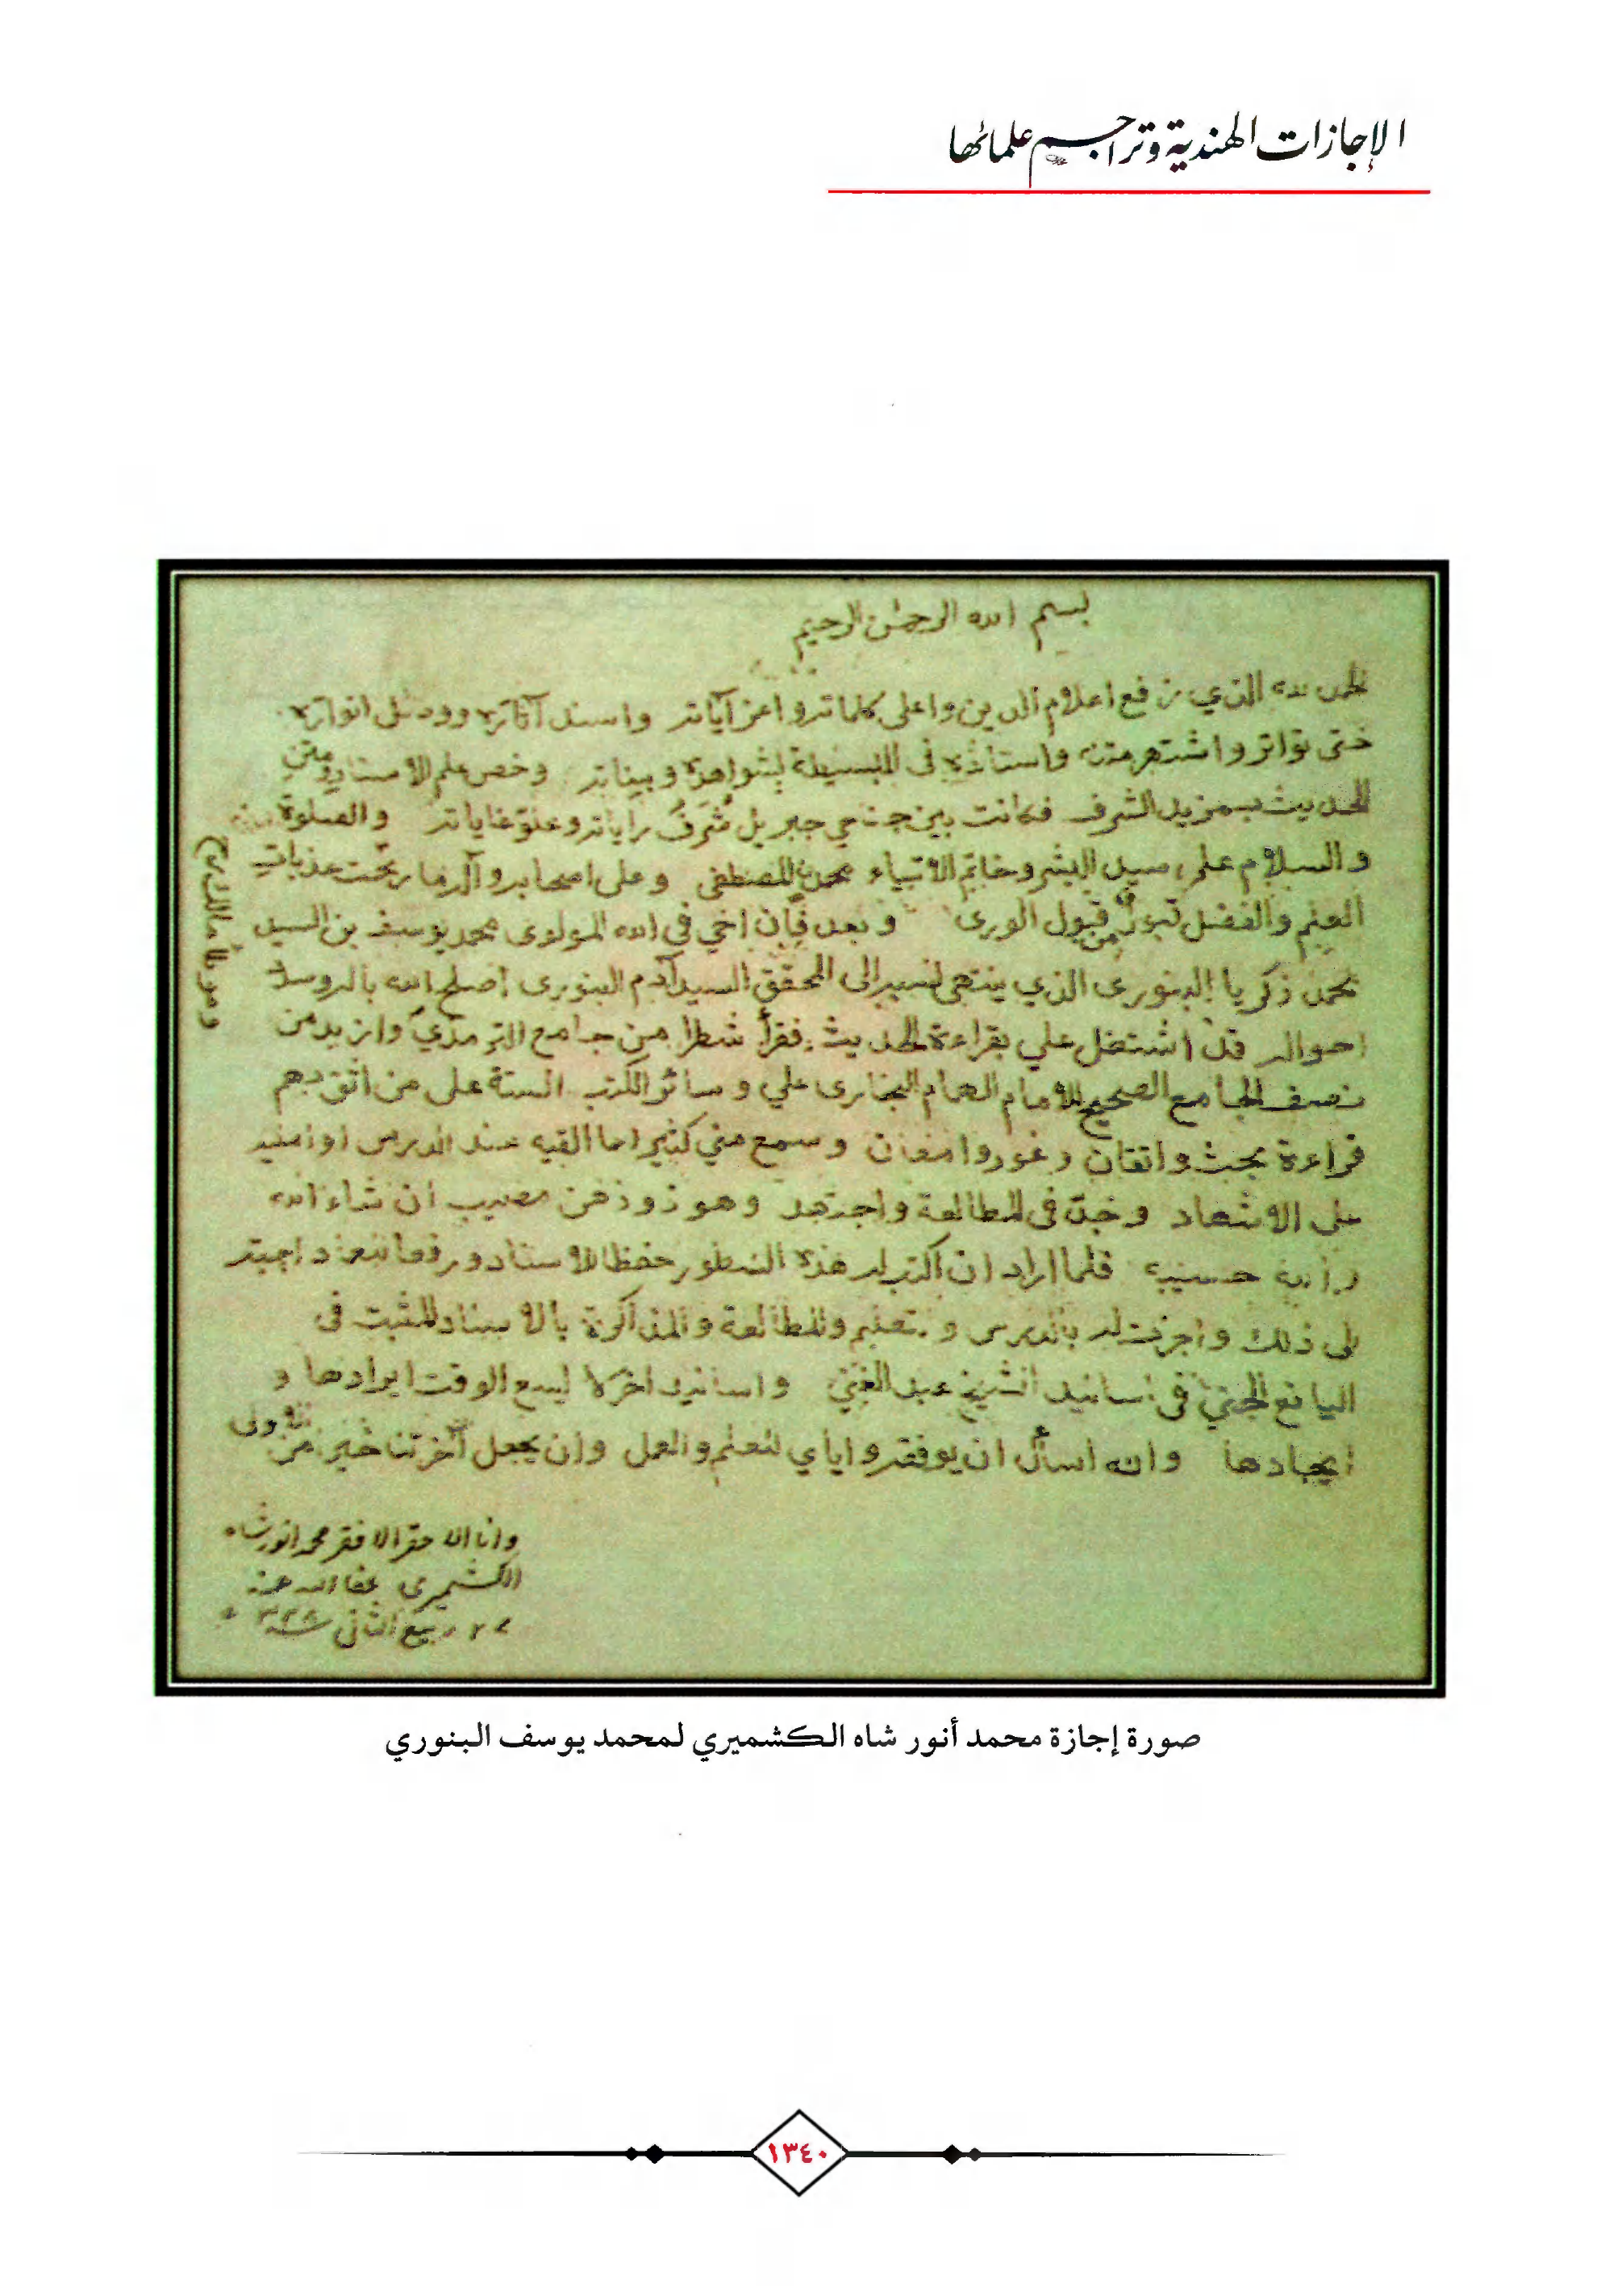 الإجازات الهندية وتراجم علمائها
بسم الله الرحمٰن الرحيم
الحمد لله الذي رفع اعلام الدين واعلى كلماته واعز آياته واسند آثاره ووصل انواره
حتى تواتر واشتهر متنه واسناده فى البسيطة بشواهده وبيناته وخص علم الاسناد ومتن
الحديث بمزيد الشرف فكانت بين جناحي جبريل شرف راياته وعلو غاياته والصلوة
والسلام على سيد البشر وخاتم الانبياء محمد المصطفى وعلى اصحابه وآله ما ريحت عذبات
العلم والفضل قبول من قبول الورى وبعد فإن اخي فى الله المولوى محمد يوسف بن السيد
محمد زكريا البنورى الذي ينتهى نسبه الى المحقق السيد آدم البنورى اصلح الله باله وسدد
احواله قد اشتغل علي بقراءة الحديث فقرأ شطرا من جامع الترمذي وازيد من
نصف الجامع الصحيح للامام الهمام البخارى علي وسائر الكتب الستة على من اثق بهم
قراءة بحث واتقان وغور وامعان وسمع مني كثيرا مما القيه عند الدرس او
على الاشهاد وجد فى المطالعة واجتهد وهو ذو ذهن مصيب ان شاء الله
والله حسيبه فلما اراد ان اكتب له هذه السطور حفظا للاسناد ورفعا للعناد اجبته
الى ذلك واجزت له بالدرس والتعليم والمطالعة والمذاكرة بالاسناد المثبت فى
اليانع الجني فى اسانيد الشيخ عبد الغني واسانيد اخر لا يسع الوقت ايرادها و
ايجادها والله اسأل ان يوفقه واياي للعلم والعمل وان يجعل آخرتنا خير من الاولى
وانا الاحقر الافقر محمد انور شاه
الكشميرى عفا الله عنه
ربيع الثانى
صورة إجازة محمد أنور شاه الكشميري لمحمد يوسف البنوري
١٣٤٠